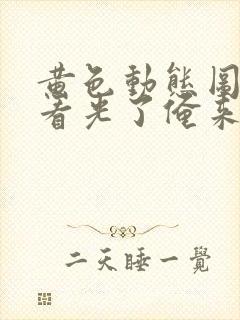 黄色動態圖
看光了俺来
二天睡一覺